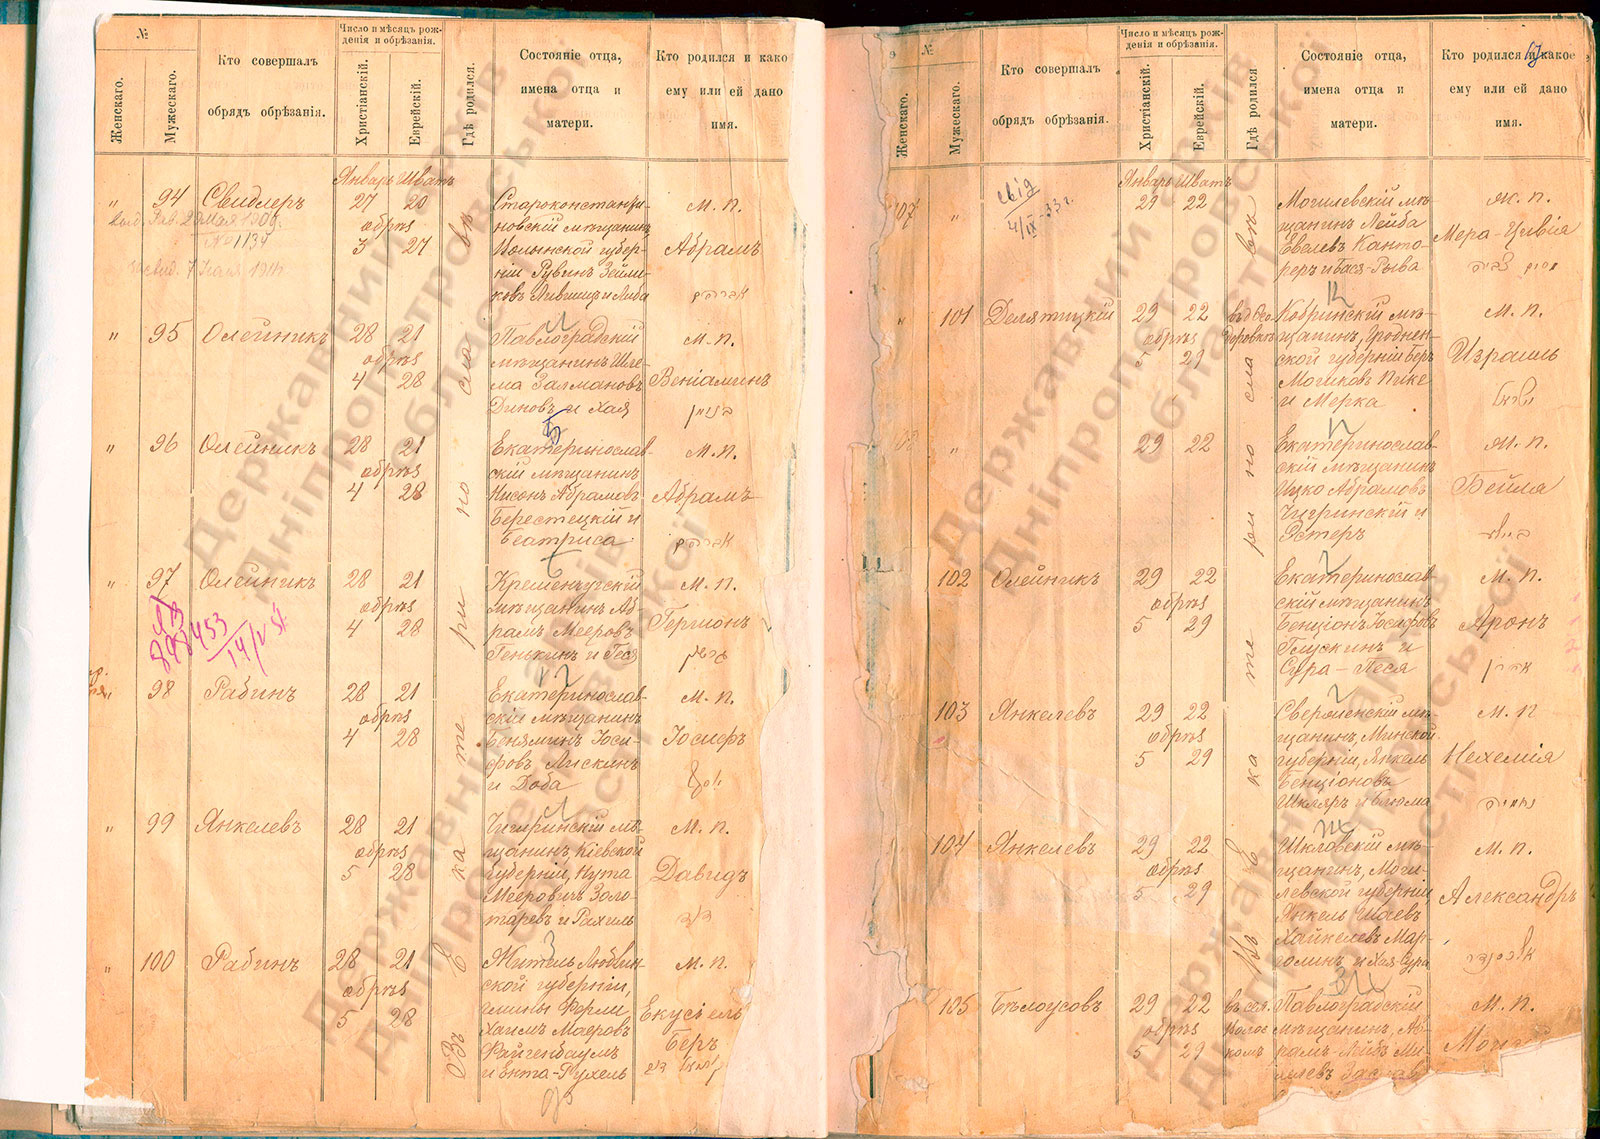 №
Женскаго.
Мужескаго.
Кто совершалъ
обрядъ обрѣзанія.
Число и мѣсяцъ рож-
денія и обрѣзанія.
Христіанскій.
Еврейскій.
Гдѣ родился.
Состояніе отца,
имена отца и
матери.
Кто родился и како
ему или ей дано
имя.
Январь Шватъ
" 94 Свидлеръ 27 20
обрѣз
3 27
Староконстанти-
новскій мѣщанинъ
Волынской губер-
ніи Рувинъ Зейли-
ковъ Лившицъ и Либа
м. п.
Абрамъ
אברהם
№ 1134
" 95 Олейникъ 28 21
обрѣз
4 28
Павлоградскій
мѣщанинъ Шле-
ма Залмановъ
Диновъ и Хая
м. п.
Веніаминъ
בנימין
" 96 Олейникъ 28 21
обрѣз
4 28
Екатеринослав-
скій мѣщанинъ
Нисонъ Абрамовъ
Берестецкій и
Беатриса
м. п.
Абрамъ
אברהם
" 97 Олейникъ 28 21
обрѣз
4 28
Кременчугскій
мѣщанинъ Аб-
рамъ Мееровъ
Генькинъ и Геся
м. п.
Гершонъ
גרשון
898453
" 98 Рабинъ 28 21
обрѣз
4 28
Екатеринослав-
скій мѣщанинъ
Беняминъ Іоси-
фовъ Лискинъ
и Доба
м. п.
Іосифъ
יוסף
" 99 Янкелевъ 28 21
обрѣз
5 28
Чигиринскій мѣ-
щанинъ, Кіевской
губерніи, Нута
Мееровичъ Золо-
таревъ и Рахиль
м. п.
Давидъ
דוד
" 100 Рабинъ 28 21
обрѣз
5 28
Житель Люблин-
ской губерніи,
гмины
Хаимъ Мееровъ
Файгенбаумъ
и Ента-Рухель
м. п.
Екусіель
Беръ
Въ Екатеринославѣ
№
Женскаго.
Мужескаго.
Кто совершалъ
обрядъ обрѣзанія.
Число и мѣсяцъ рож-
денія и обрѣзанія.
Христіанскій.
Еврейскій.
Гдѣ родился
Состояніе отца,
имена отца и
матери.
Кто родился и какое
ему или ей дано
имя.
Январь Шватъ
107 " 29 22
4/IX-33 г.
Могилевскій мѣ-
щанинъ Лейба
Евелевъ Канто-
реръ и Бася-Рыва
ж. п.
Мера-Цивія
" 101 Делятицкій 29 22
обрѣз
5 29
Кобринскій мѣ-
щанинъ, Гроднен-
ской губерніи Беръ
и Мерка
м. п.
Израиль
ישראל
" 29 22
Екатеринослав-
скій мѣщанинъ
Ицко Абрамовъ
Чигринскій и
Эстеръ
ж. п.
Бейла
ביילא
102 Олейникъ 29 22
обрѣз
5 29
Екатеринослав-
скій мѣщанинъ
Бенціонъ Іосифовъ
Глускинъ и
Сура-Песя
м. п.
Аронъ
אהרן
103 Янкелевъ 29 22
обрѣз
5 29
Сверженскій мѣ-
щанинъ, Минской
губерніи, Янкель
Бенціоновъ
Шкляръ и Блюма
м. п
Нехемія
נחמיה
104 Янкелевъ 29 22
обрѣз
5 29
Шкловскій мѣ-
щанинъ, Моги-
левской губерніи,
Янкель Шаевъ
Хайкелевъ Мар-
голинъ и Хая-Сура
м. п.
Александръ
אלכסנדר
105 Бѣлоусовъ 29 22
обрѣз
5 29
Павлоградскій
мѣщанинъ, Ав-
рамъ-Лейбъ Ми-
м. п.
Въ Екатеринославѣ
Державний архів
Дніпропетровської
області